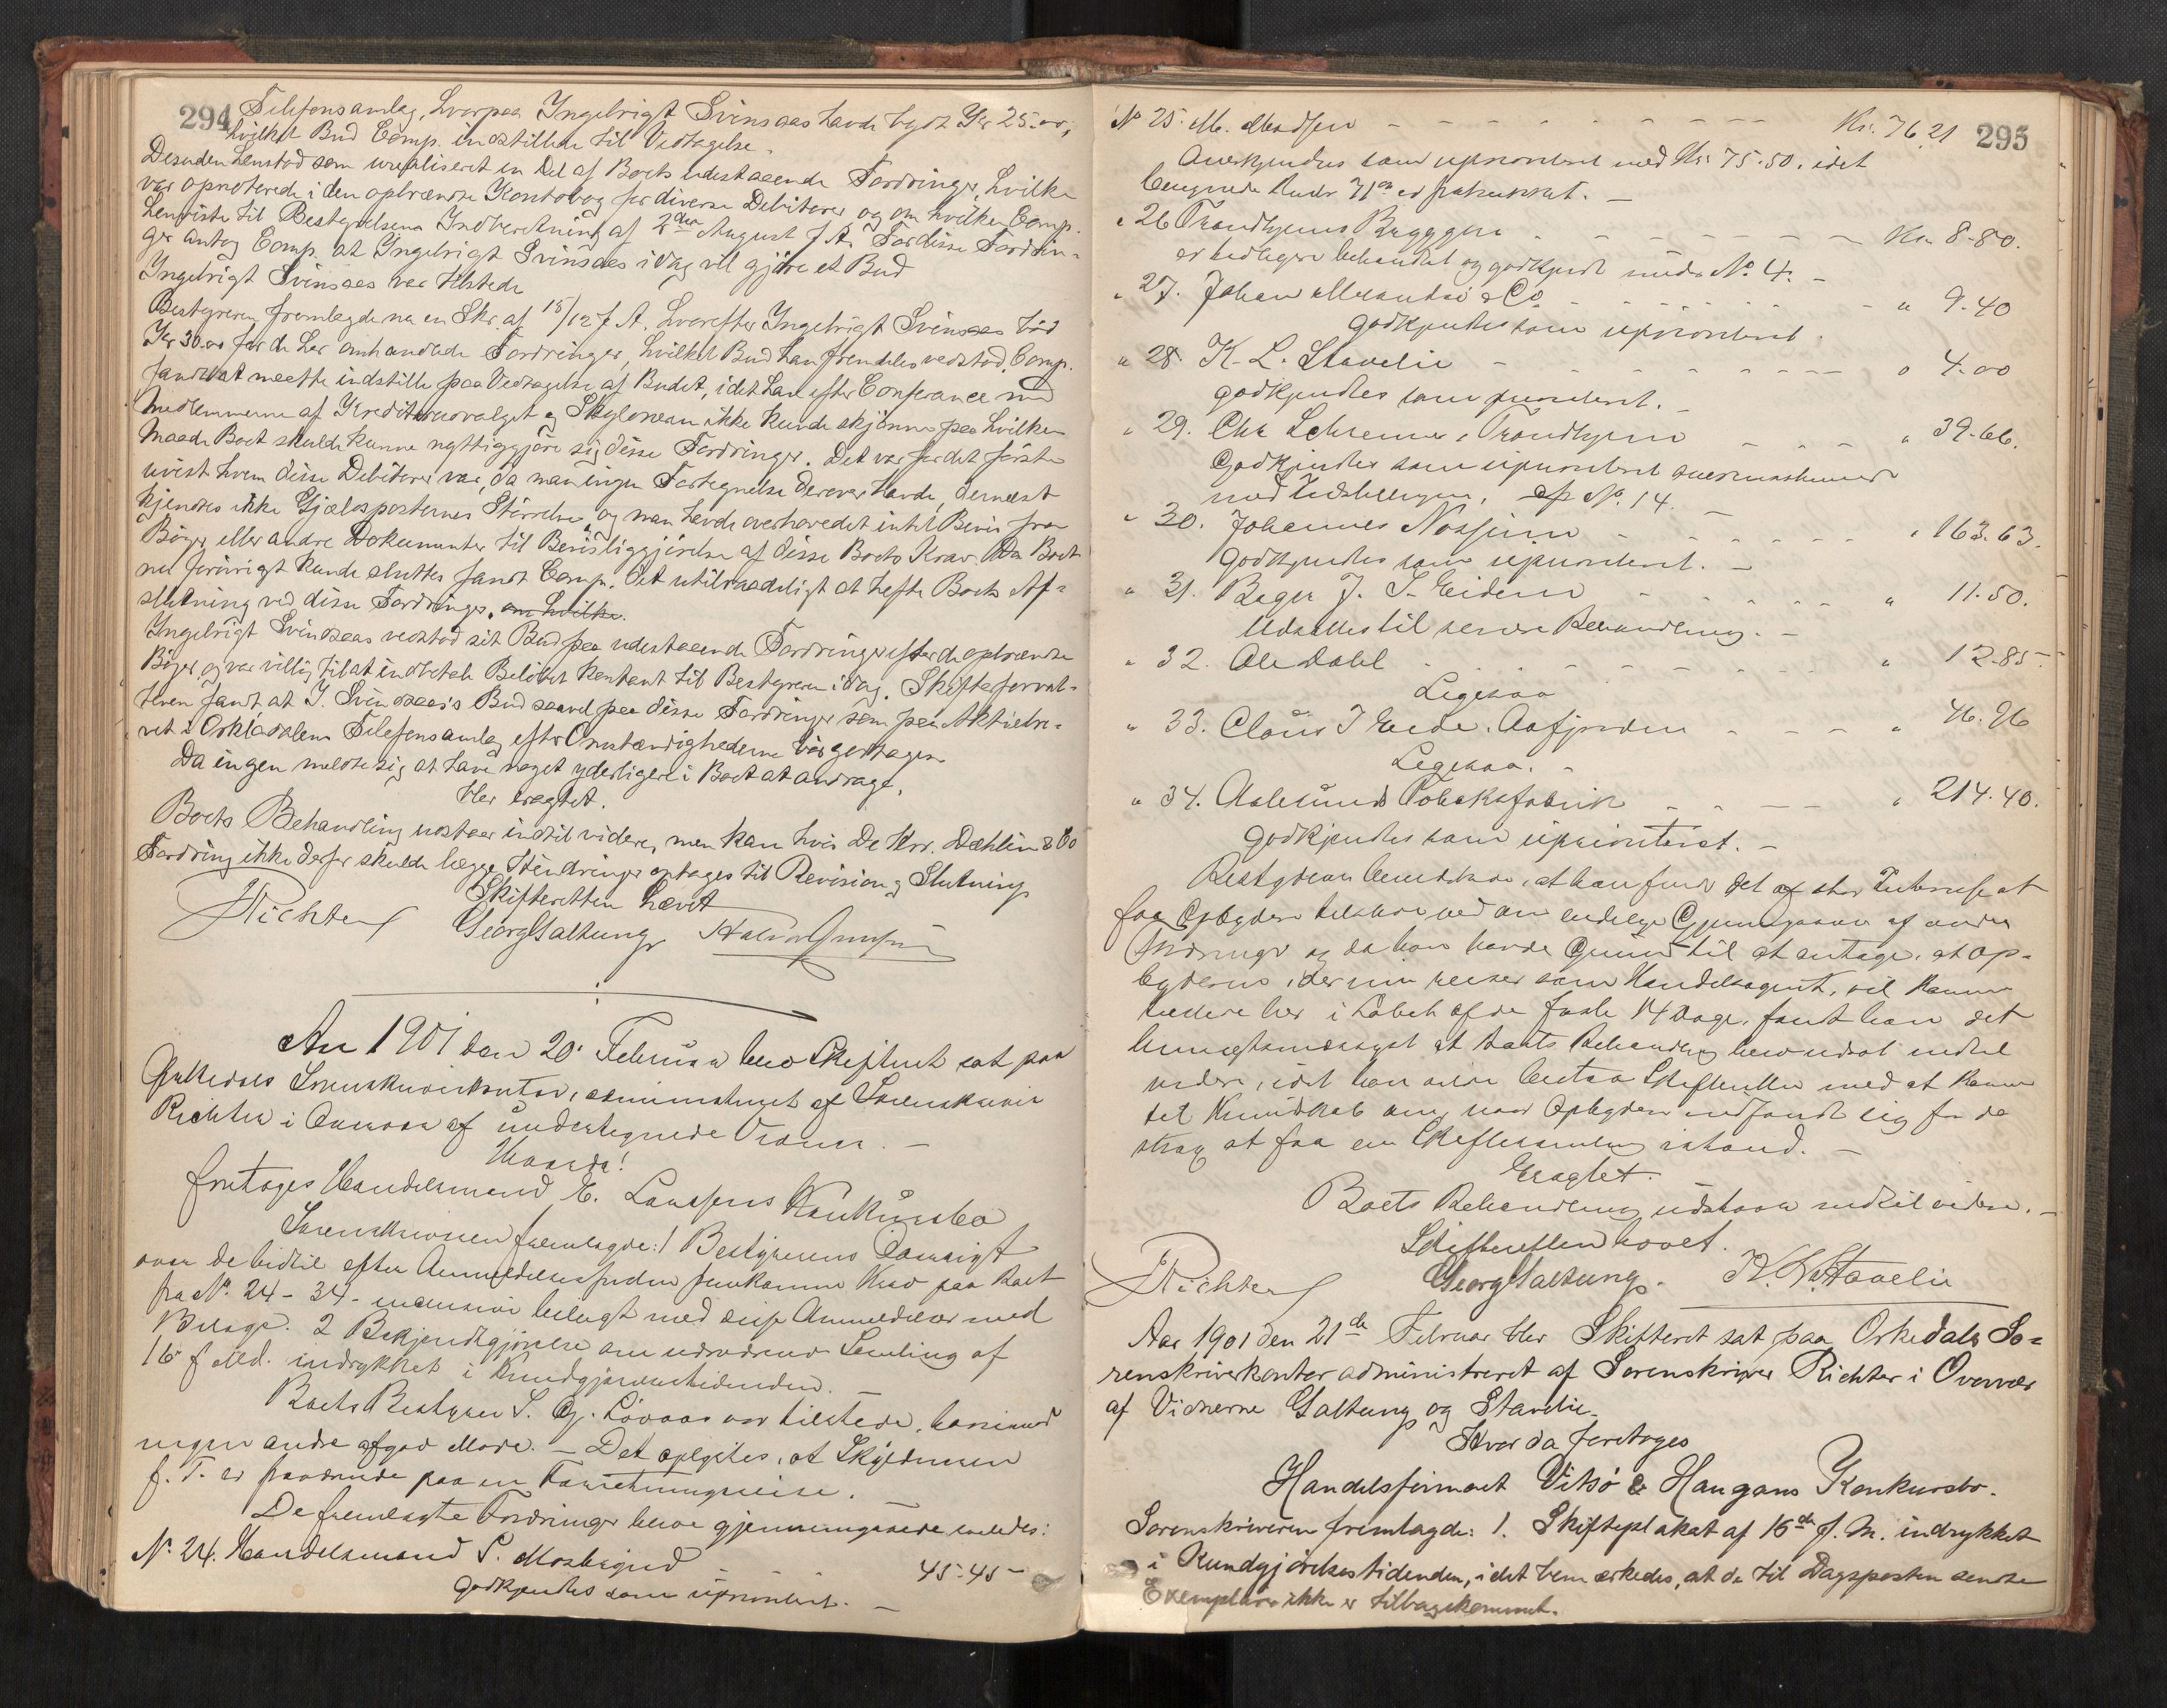 294
Telefonsanlæg, hvorpaa Ingebrigt Svinsaas havde bydt Kr 25.00,
hvilket Bud Comp. indstillede til Vedtagelse.
Desuden henstod som urealiseret en Del af Boets udestaaende Fordringer, hvilke
var opnoterede i den opbrændte Kontobog for diverse Debitorer og om hvilke Comp.
henviste til Bestyrelsens Indberetning af 2den August f. A. For disse Fordrin-
ger antog Comp. at Ingebrigt Svinsaas idag vil gjøre et Bud
Ingebrigt Svinsaas var tilstede
Bestyreren fremlagde nu en Skr. af 15/12 f. A. hvorefter Ingebrigt Svinsaas bød
Kr 30.00 for de her omhandlede Fordringer, hvilket Bud han fremdeles vedstod. Comp.
fandt at maatte indstille paa Vedtagelse af Budet, idet han efter Conferance med
Medlemmerne af Kreditorudvalget og Skyldneren ikke kunde skjønne paa hvilken
Maade Boet skulde kunne nyttiggjøre sig disse Fordringer. Det var for det første
uvist hvem disse Debitorer var, da man ingen Fortegnelse derover havde, dernæst
kjendtes ikke Gjældsposternes Størrelse, og man havde overhovedet intet Bevis fra
Bøger eller andre Dokumenter til Bevisliggjørelse af disse Boets Krav. Da Boet
nu forøvrigt kunde sluttes fandt Comp. det utilraadeligt at hefte Boets Af-
slutning ved disse Fordringer. om hvilke.
Ingebrigt Svinsaas vedstod sit Bud paa udestaaende Fordringer efter de opbrændte
Bøger, og var villig til at indbetale Beløbet kontant til Bestyreren idag. Skifteforval-
teren fandt at I. Svinsaas's Bud saavel paa disse Fordringer som paa Aktiebre-
vet i Orkladalens Telefonsanlæg efter Omstændighederne bør godtages
Da ingen meldte sig at have noget yderligere i Boet at andrage,
blev eragtet.
Boets Behandling udstaar indtil videre, men kan hvis De Hrr. Dæhlin & Co
Fordring ikke derfor skulde lægge Hindringer optages til Revision og Slutning
Skifteretten hævet
JRichter Georg Galtung
An 1901 den 20. Februar blev Skifteret sat paa
Orkedals Sorenskriverkontor, administreret af Sorenskriver
Richter i Overvær af undertegnede Vidner. —
Hvorda!
foretoges Handelsmand E. Laurssens Konkursbo
Sorenskriveren fremlagde: 1 Bestyrerens Oversigt
over de hidtil efter Anmeldelsesfristen fremkomne Krav paa Boet
fra No. 24 - 34 - inclusive belagt med disse Anmeldelser med
Bilage. 2 Bekjendtgjørelse om nærværende Samling af
16 f. Md. indrykket i Kundgjørelsestidenden. —
Boets Bestyrer S. Løvaas var tilstede, hvorimod
ingen andre afgav Møde. — Det oplystes, at Skyldneren
f. T. er fraværende paa en Forretningsreise.
De fremlagte Fordringer blev gjennemgaaede saaledes:
No. 24. Handelsmand P. - 45-45 -
godkjendtes som uprioritert. —
295
No 25. M. Madsen - - - - - - - Kr. 76.21
Anerkjendes som uprioriteret med Kr. 75.50. idet
beregnede Renter 71 er frahukket. —
" 26 Trondhjems Bryggeri - - - - - - Kr. 8-80.
er tidligere behandlet og godkjendt under No. 4. -
" 27. Johan & Co. - - - - - - " 9.40
godkjendtes som uprioriteret.
" 28. K. L. Stavelie - - - - - - " 4.00
godkjendtes som prioriteret. —
" 29. Chr Schreiner, Trondhjem - - - " 39-66.
Godkjendtes som uprioriteret overensstemmende
med Indstillingen, cfr No. 14. —
" 30. Johannes - - - - - - " 163.63.
godkjendtes som uprioriteret. —
" 31. Bager J. S. Eidem - - - - - " 11.50.
Udsattes til senere Behandling. —
" 32. Ole Dahl - - - - - - - " 12-85.
Ligesaa
" 33. Claus J Eide. Aafjorden - - - - " 46.26
Ligesaa. —
" 34. Aalesunds Tobaksfabrik - - - - " 214.40.
godkjendtes som uprioriteret. —
Bestyreren bemærkede, at han fandt det af stor Interesse at
faa Opbyderen tilstede ved den endelige Gjennemgaaelse af andre
Fordringer og da han havde Grund til at antage, at Op-
byderen, der nu reiser som Handelsagent, vil komme
tilstede her i Løbet af de første 14 Dage, fandt han det
hensigtsmæssigst at Boets Behandling blev udsat indtil
videre, idet han vilde bistaa Skifteretten med at komme
til Kundskab om, naar Opbyderen indfandt sig for da
strax at faa en Skiftesamling istand. —
Eragtet.
Boets Behandling udstaar indtil videre. —
Skifteretten hævet.
JRichter Georg Galtung. K. L. Stavelie
Aar 1901 den 21de Februar blev Skifteret sat paa Orkedals So-
renskriverkontor administreret af Sorenskriver Richter i Overvær
af Vidnerne Galtung og Stavlie.
Hvor da foretoges
Handelsfirmaet Vitsø & Haugans Konkursbo.
Sorenskriveren fremlagde: 1. Skifteplakat af 16de f. M. indrykket
i Kundgjørelsestidenden, idet bemærkedes, at de til Dagsposten sendte
Exemplarer ikke er tilbagekommet.